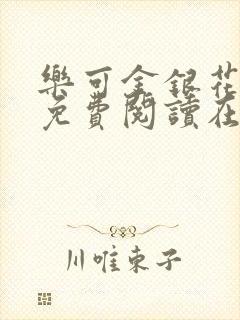 樂可金銀花
免費閱讀在
川唯東子